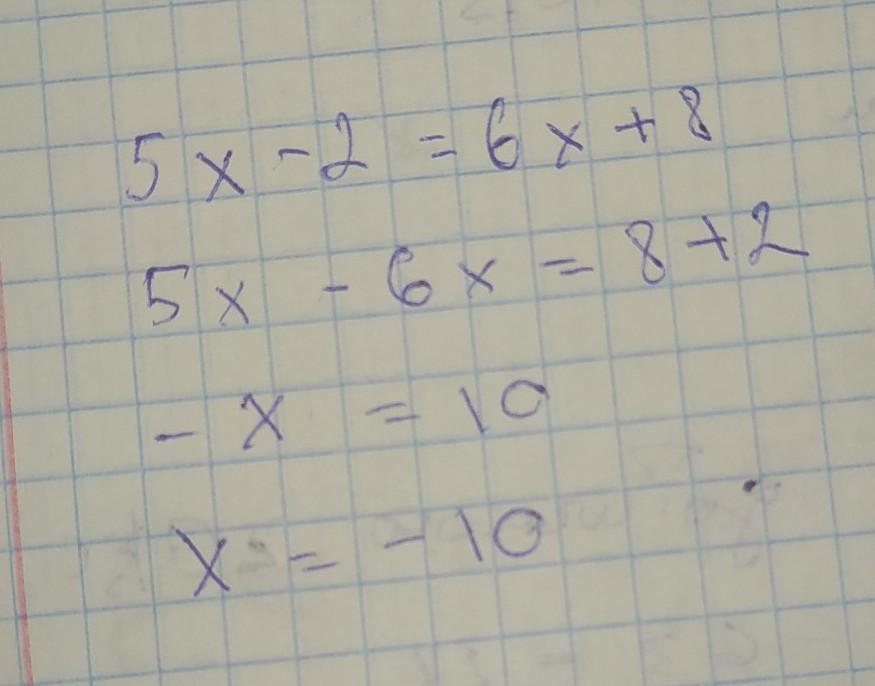 5x - 2 = 6x + 8
5x - 6x = 8 + 2
- x = 10
x = - 10